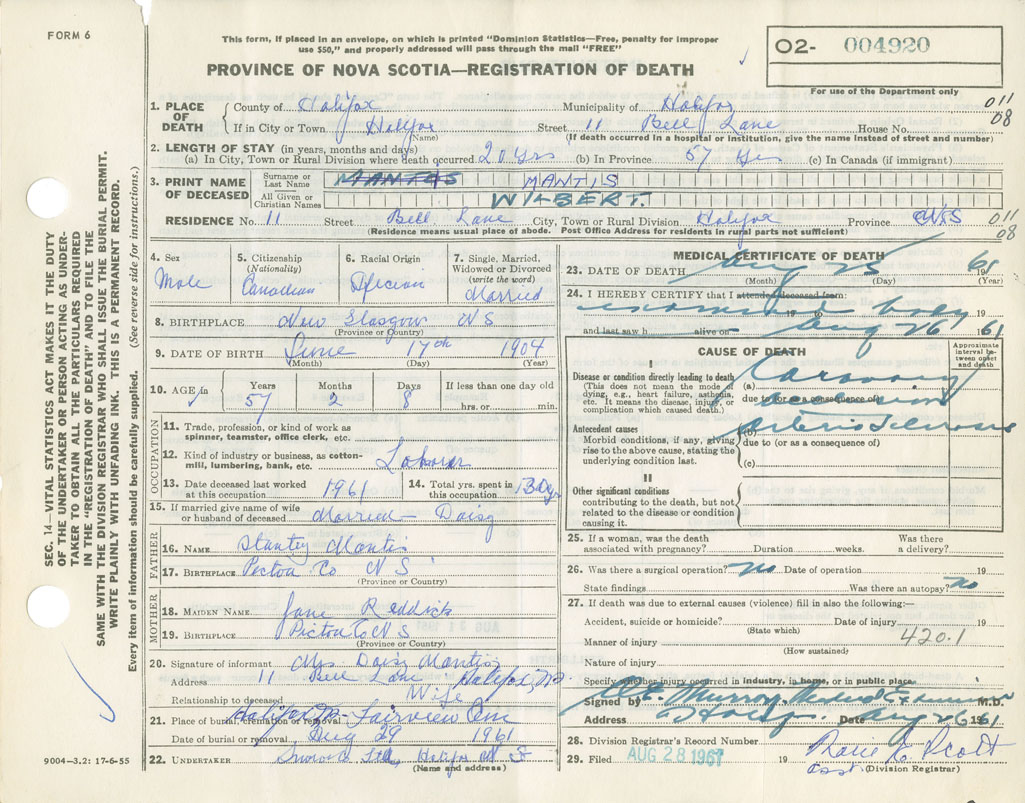 FORM 6
This form, if placed in an envelope, on which is printed "Dominion Statistics—Free, penalty for improper
use $50," and properly addressed will pass through the mail "FREE"
O2- 004920
PROVINCE OF NOVA SCOTIA—REGISTRATION OF DEATH
For use of the Department only
1. PLACE OF DEATH County of Halifax Municipality of Halifax 011
If in City or Town Halifax Street 11 Bell Lane House No. 08
(Name) (If death occurred in a hospital or institution, give the name instead of street and number)
2. LENGTH OF STAY (in years, months and days)
(a) In City, Town or Rural Division where death occurred 20 yrs (b) In Province 57 yrs (c) In Canada (if immigrant)
3. PRINT NAME OF DECEASED Surname or Last Name MANTIS
All Given or Christian Names WILBERT.
RESIDENCE No. 11 Street Bell Lane City, Town or Rural Division Halifax Province NS 011
(Residence means usual place of abode. Post Office Address for residents in rural parts not sufficient) 08
4. Sex Male
5. Citizenship (Nationality) Canadian
6. Racial Origin African
7. Single, Married, Widowed or Divorced (write the word) Married
8. BIRTHPLACE New Glasgow NS
(Province or Country)
9. DATE OF BIRTH June 17th 1904
(Month) (Day) (Year)
10. AGE in Years 57 Months 2 Days 8 If less than one day old
hrs. or min.
OCCUPATION
11. Trade, profession, or kind of work as
spinner, teamster, office clerk, etc.
12. Kind of industry or business, as cotton-
mill, lumbering, bank, etc. Laborer
13. Date deceased last worked at this occupation 1961 14. Total yrs. spent in this occupation 30 yrs
15. If married give name of wife
or husband of deceased Married - Daisy
FATHER
16. NAME Stanley Mantis
17. BIRTHPLACE Pictou Co NS
(Province or Country)
MOTHER
18. MAIDEN NAME Jane Reddick
19. BIRTHPLACE Pictou Co NS
(Province or Country)
20. Signature of informant Mrs Daisy Mantis
Address 11 Bell Lane Halifax, N.S.
Relationship to deceased Wife
21. Place of burial, cremation or removal Halifax Fairview Cem
Date of burial or removal Aug 29 1961
22. UNDERTAKER Ltd, Halifax N S
(Name and address)
MEDICAL CERTIFICATE OF DEATH
23. DATE OF DEATH Aug 25 1961
(Month) (Day) (Year)
24. I HEREBY CERTIFY that I attended deceased from:
examined body 19 to 19
and last saw h alive on Aug 26 1961
CAUSE OF DEATH
Approximate interval between onset and death
I
Disease or condition directly leading to death
(This does not mean the mode of
dying, e.g., heart failure, asthenia,
etc. It means the disease, injury, or
complication which caused death.)
(a) Coronary
due to (or as a consequence of) occlusion
Antecedent causes
Morbid conditions, if any, giving
rise to the above cause, stating the
underlying condition last.
(b) Arteriosclerosis
due to (or as a consequence of)
(c)
II
Other significant conditions
contributing to the death, but not
related to the disease or condition
causing it.
25. If a woman, was the death Was there
associated with pregnancy? Duration weeks. a delivery?
26. Was there a surgical operation? no Date of operation 19
State findings Was there an autopsy? no
27. If death was due to external causes (violence) fill in also the following:—
Accident, suicide or homicide? Date of injury 19
(State which)
Manner of injury 420.1
(How sustained)
Nature of injury
Specify whether injury occurred in industry, in home, or in public place.
Signed by Murray Medical Examiner M.D.
Address Halifax Date Aug 26 1961
28. Division Registrar's Record Number
29. Filed AUG 28 1961 19 Scott
(Division Registrar)
SEC. 14—VITAL STATISTICS ACT MAKES IT THE DUTY
OF THE UNDERTAKER OR PERSON ACTING AS UNDER-
TAKER TO OBTAIN ALL THE PARTICULARS REQUIRED
IN THE "REGISTRATION OF DEATH" AND TO FILE THE
SAME WITH THE DIVISION REGISTRAR WHO SHALL ISSUE THE BURIAL PERMIT.
WRITE PLAINLY WITH UNFADING INK. THIS IS A PERMANENT RECORD.
Every item of information should be carefully supplied. (See reverse side for instructions.)
9004—3.2: 17-6-55